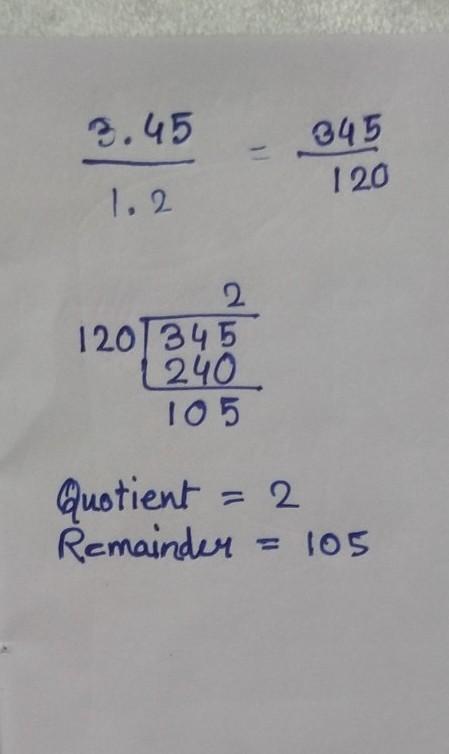 3.45 = 345
1.2 120
2
120 345
240
105
Quotient = 2
Remainder = 105